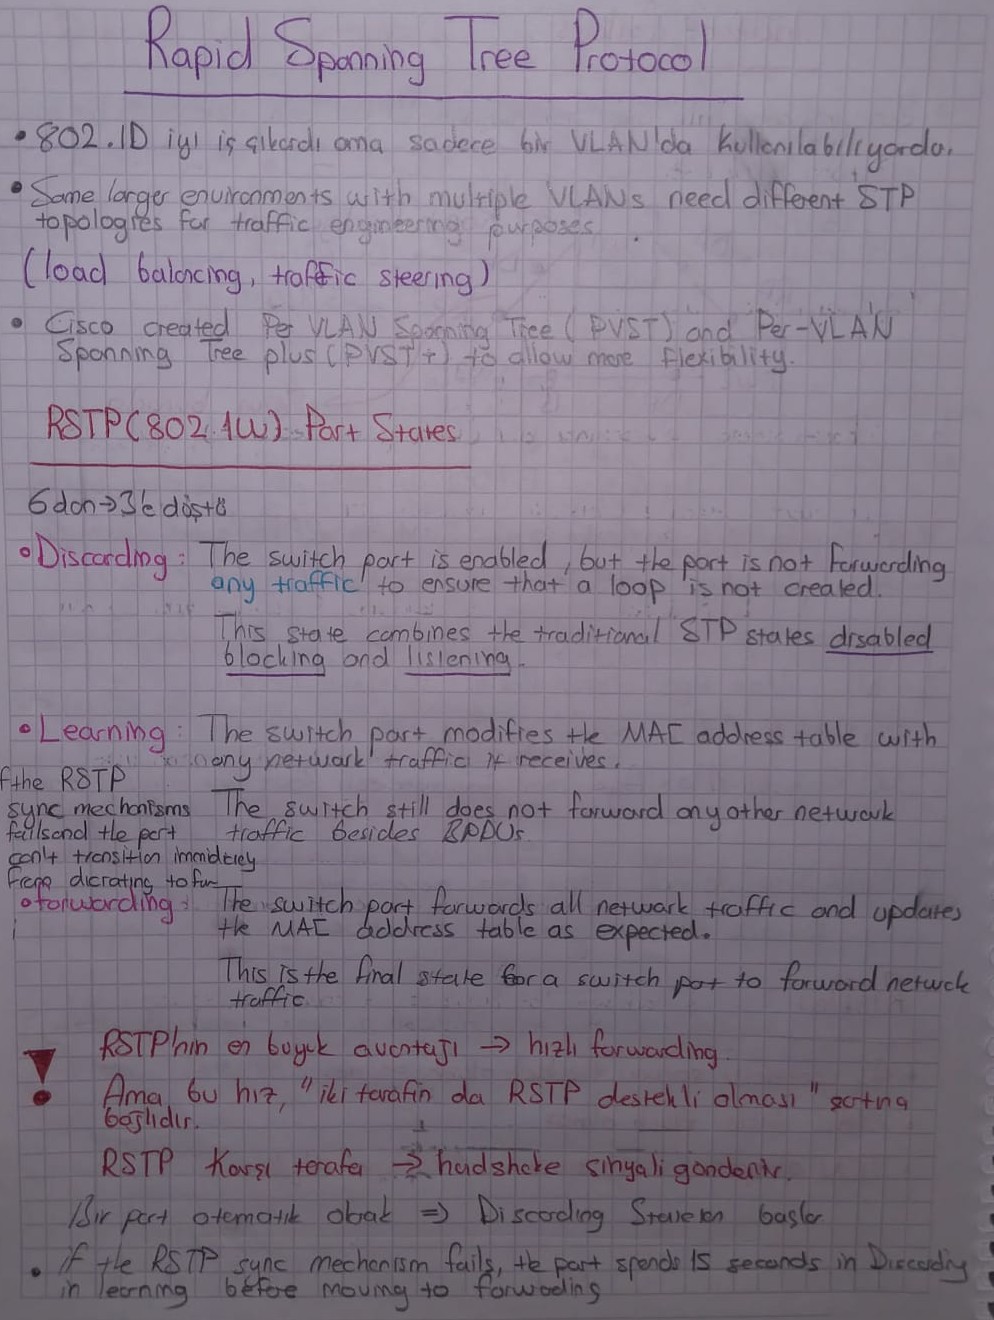 Rapid Spanning Tree Protocol
• 802.1D iyi iş çıkardı ama sadece bir VLAN'da kullanılabiliyordu.
• Some larger environments with multiple VLANs need different STP
topologies for traffic engineering purposes.
(load balancing, traffic steering)
• Cisco created Per VLAN Spanning Tree (PVST) and Per-VLAN
Spanning Tree plus (PVST+) to allow more flexibility.
RSTP(802.1W) Port States
6dan→3'e düştü
• Discarding: The switch port is enabled, but the port is not forwarding
any traffic to ensure that a loop is not created.
This state combines the traditional STP states disabled
blocking and listening.
• Learning: The switch port modifies the MAC address table with
any network traffic it receives.
f the RSTP
sync mechanisms
fails and the port
can't transition
from to
The switch still does not forward any other network
traffic besides BPDUs.
• forwarding: The switch port forwards all network traffic and updates
the MAC address table as expected.
This is the final state for a switch port to forward network
traffic
! RSTP'nin en büyük avantajı → hızlı forwarding.
Ama bu hız, "iki tarafın da RSTP destekli olması" şartına
bağlıdır.
RSTP Karşı tarafa → sinyali gönderir.
Bir port otomatik olarak ⇒ Discarding başlar
• if the RSTP sync mechanism fails, the port spends 15 seconds in Discarding
in learning before moving to forwarding